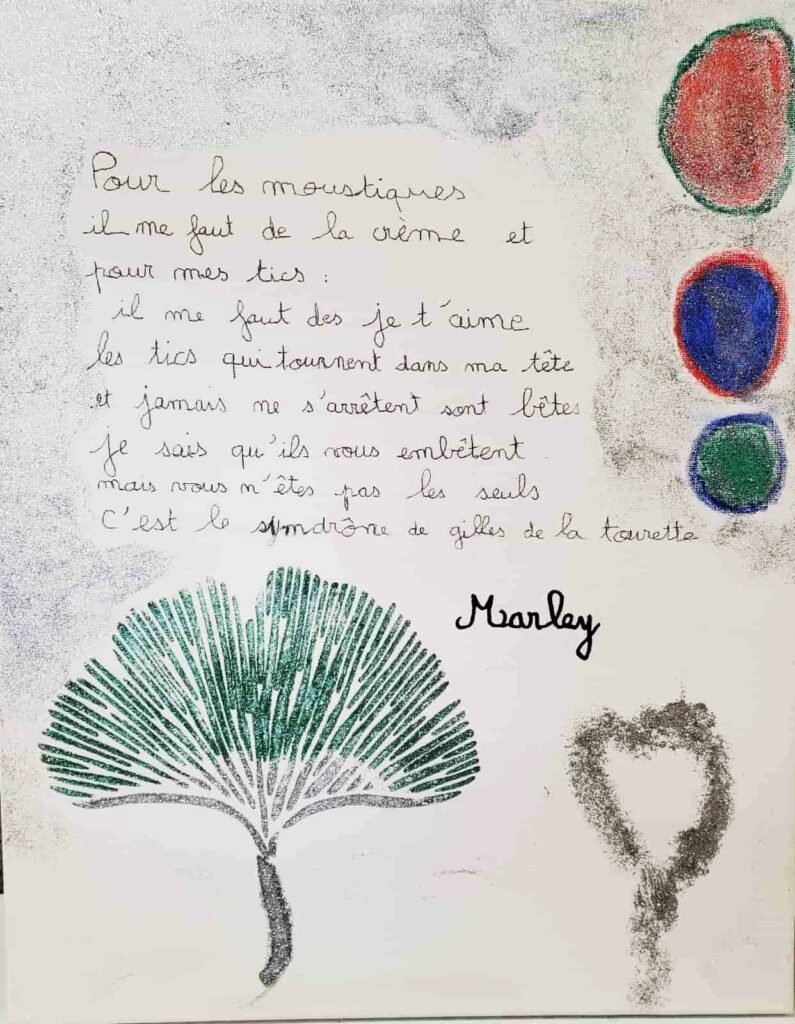 Pour les moustiques
il me faut de la crème et
pour mes tics :
il me faut des je t'aime
les tics qui tournent dans ma tête
et jamais ne s'arrêtent sont bêtes
je sais qu'ils vous embêtent
mais vous n'êtes pas les seuls
C'est le symdrône de gilles de la tourette
Marley